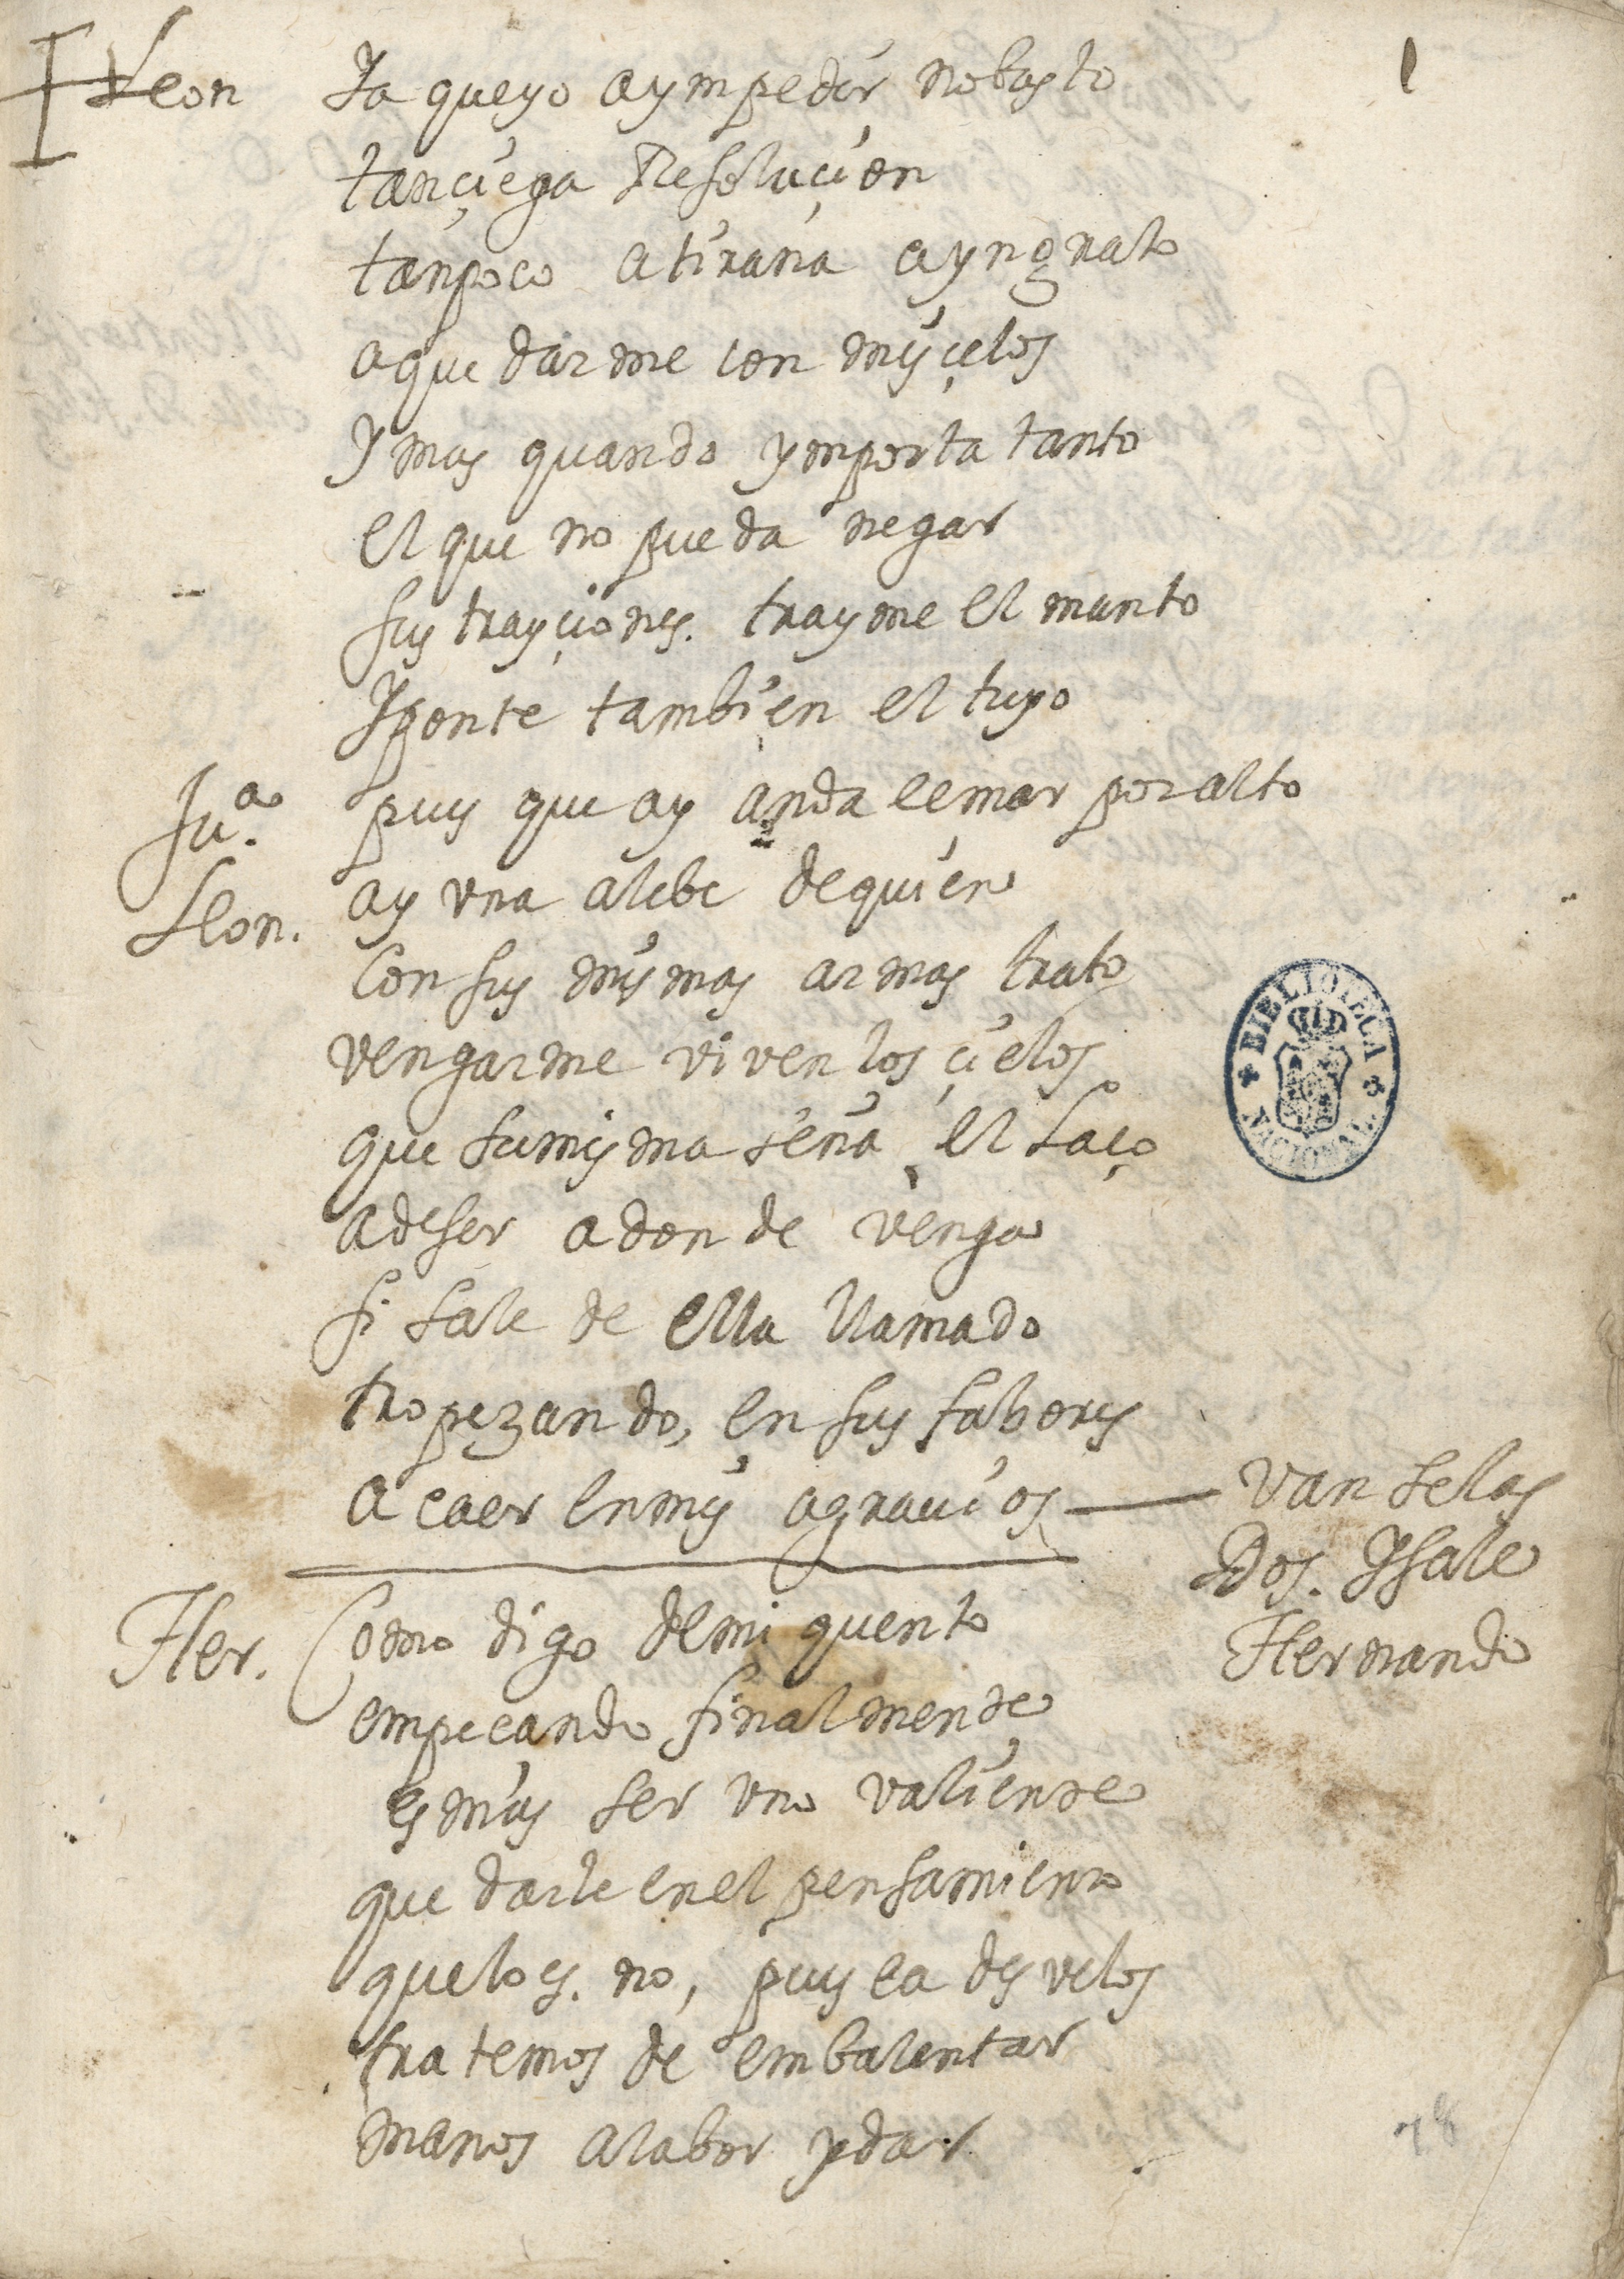 1
Leon Ya queyo aympedir nobasto
tançiega Resoluçion
tanpoco a tirana ayngrato
aquedarme con mis çelos
Y mas quando ymporta tanto
el que no pueda negar
sus trayçiones. trayme el manto
Yponte tambien el tuyo
Ju.ª pues que ay anda lemar por alto
Leon. ay una alebe dequien
Con sus mismas armas trato
vengarme viven los çielos
que sumisma seña el Laço
adeser adonde venga
si sale de ella llamado
tropezando, en sus fabores
acaer enmis agravios — Vanse las
Dos. Ysale
Hernando
Her. Como digo demi quento
empecando finalmente
es mas ser uno valiente
que darle enel pensamiento
quelo es. no, pues ea desvelos
tratemos de embalentar
manos alabor ydar
BIBLIOTECA NACIONAL
78